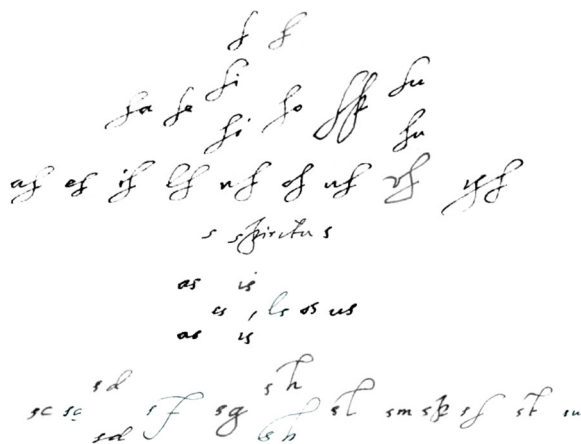 ſ ſ
ſi ſu
ſa ſe ſo
ſi ſu
aſ eſ iſ lſ nſ oſ uſ vſ
s spiritus
as is
es , ls os us
as is
sd sh
sc sç sf sg sl sm sp sſ st su
sd sh